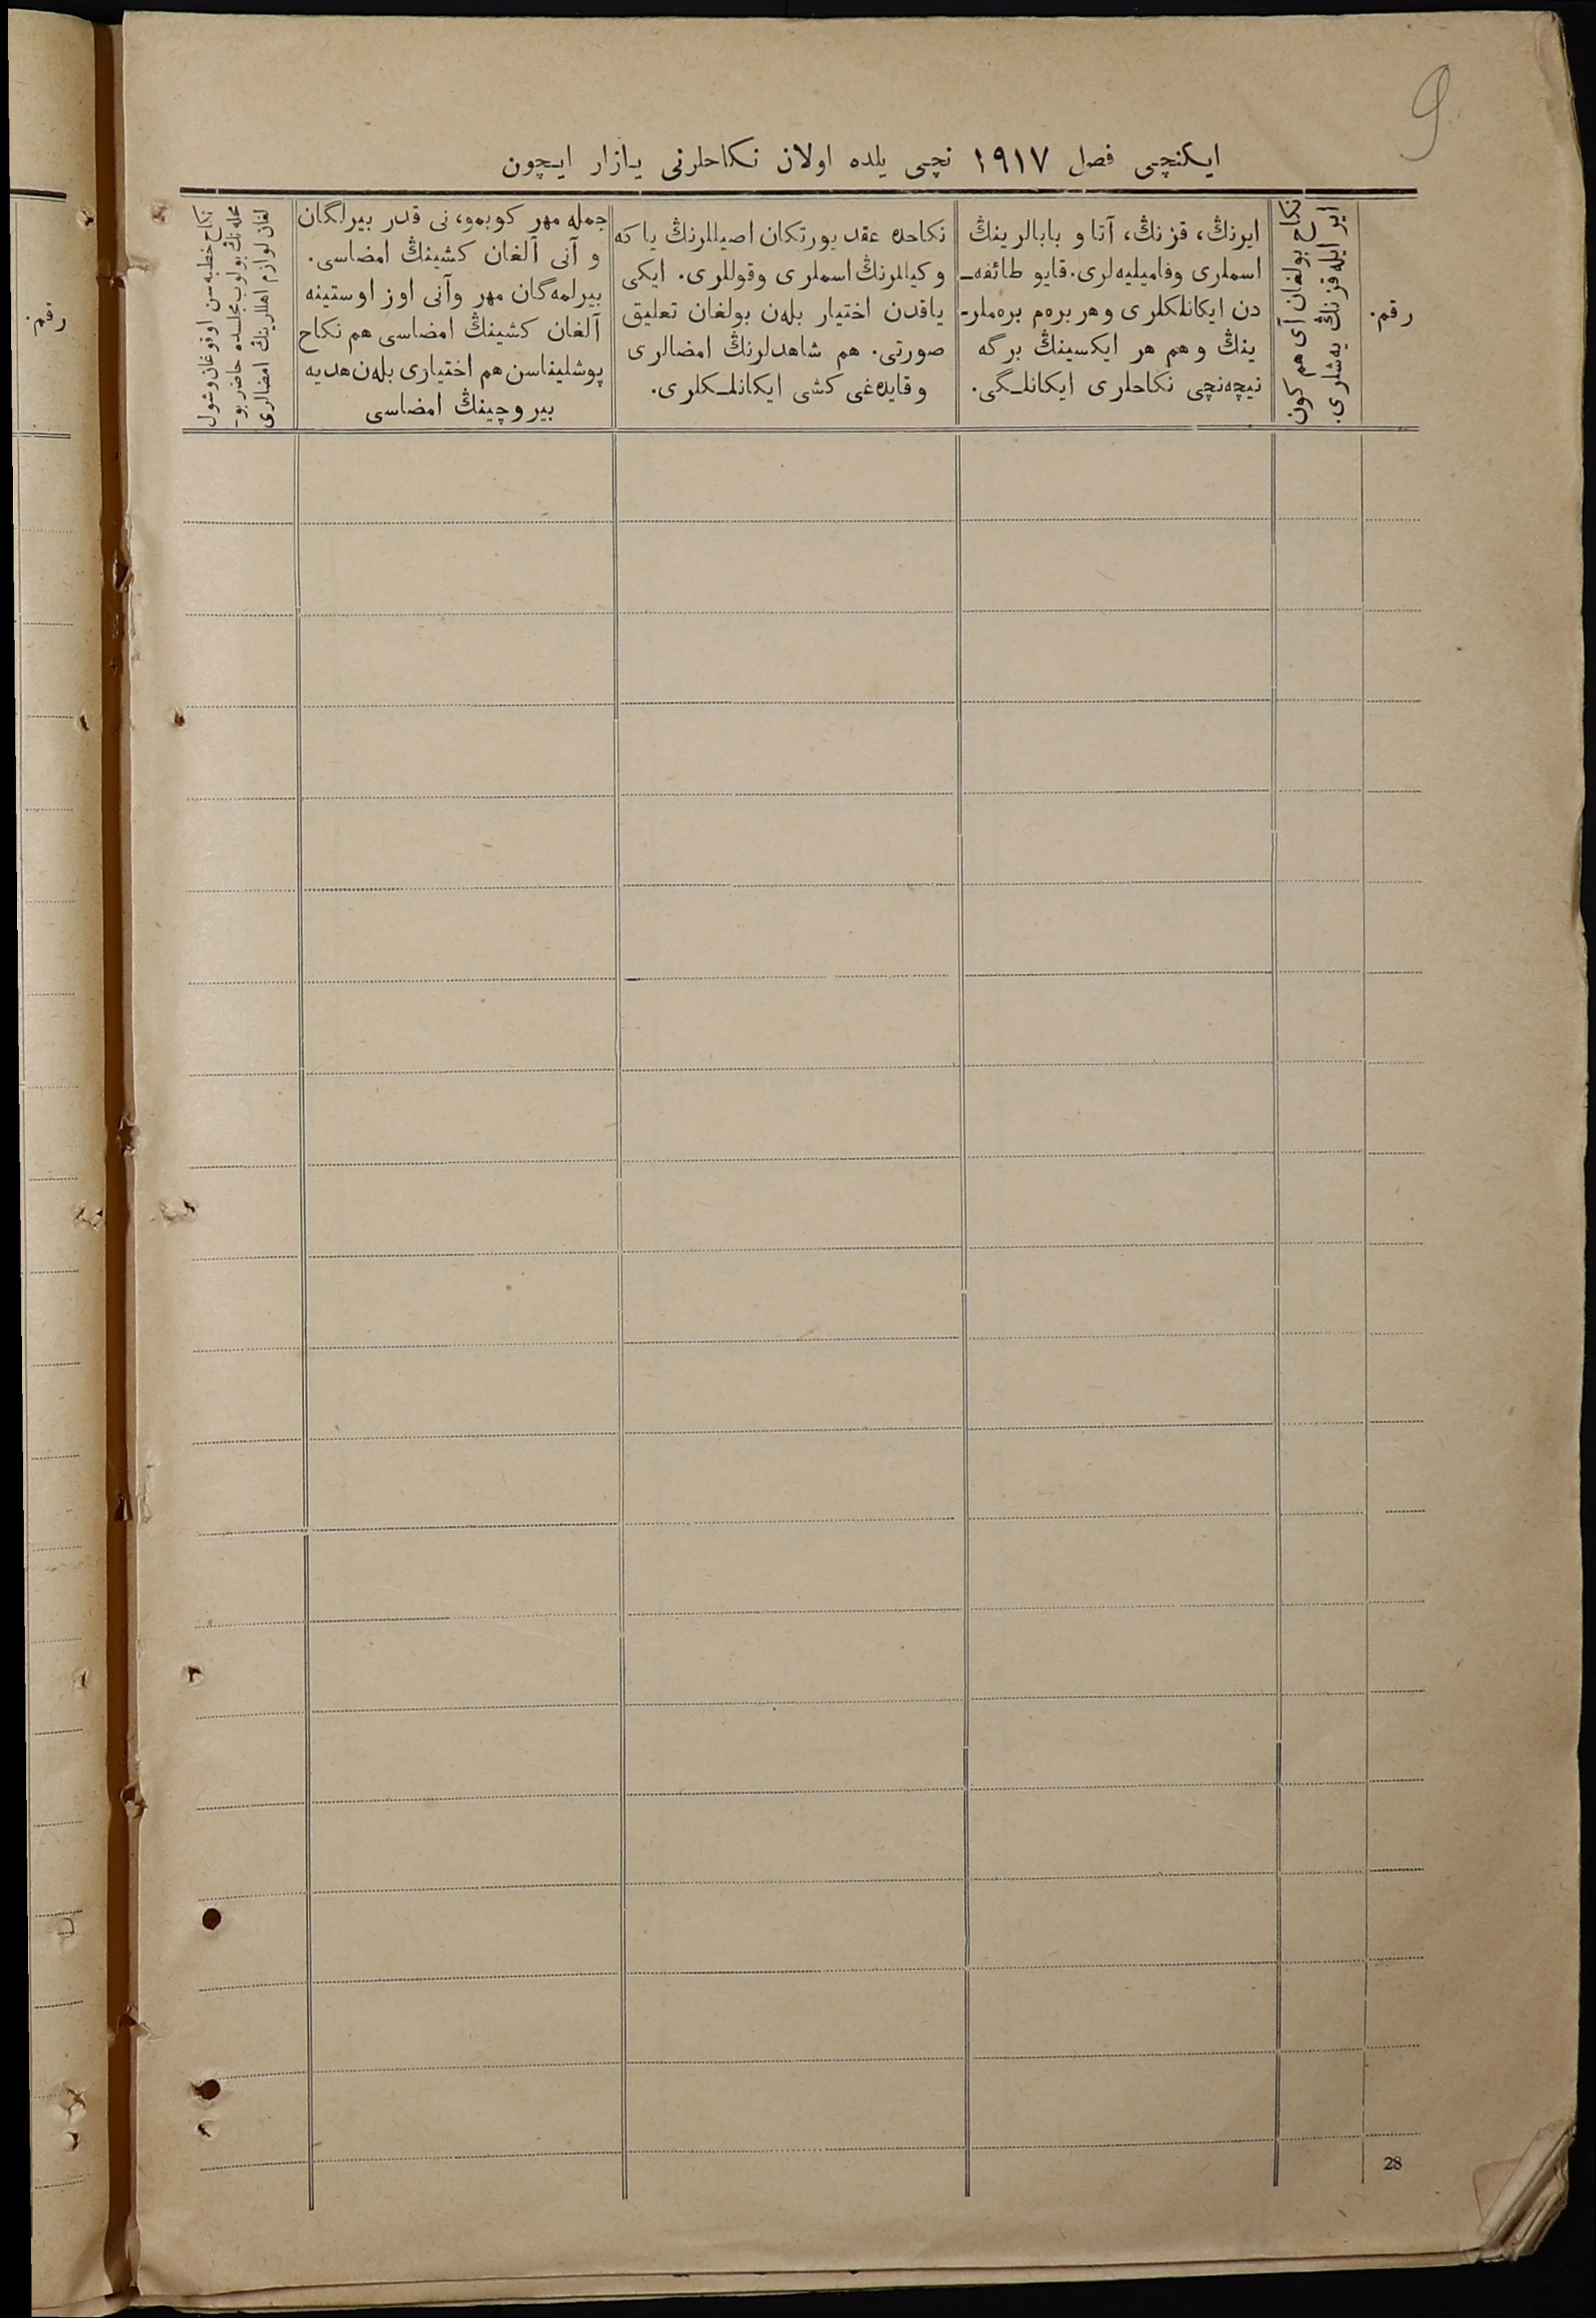 9
ایکنچی فصل ١٩١٧ نچی یلده اولان نکاحلرنی یازار ایچون
رقم.
نکاح بولغان آی هم کون
ایر ایله قزنڭ یەشلری.
ایرنڭ، قزنڭ، آتا و بابالرینڭ
اسملری وفامیلیەلری. قایو طائفه‌ـ
دن ایکانلکلری وهر برەم برەملرـ
ینڭ و هم هر ایکسینڭ برگه
نیچەنچی نکاحلری ایکانلـگی.
نکاحده عقد یورتکان اصیللرنڭ یا که
وکیللرنڭ اسملری وقوللری. ایکی
یاقدن اختیار بلەن بولغان تعلیق
صورتی. هم شاهدلرنڭ امضالری
وقایدەغی کشی ایکانلـکلری.
جمله مهر کوبمو، نی قدر بیرلگان
و آنی آلغان کشینڭ امضاسی.
بیرلمەگان مهر وآنی اوز اوستینه
آلغان کشینڭ امضاسی هم نکاح
پوشلیناسن هم اختیاری بلەن هدیه
بیروچینڭ امضاسی
نکاح خطبەسن اوقوغان وشول
محلەنڭ بولوب مجلسده حاضر بوـ
لغان لوازم اهللرینڭ امضالری
رقم.
28